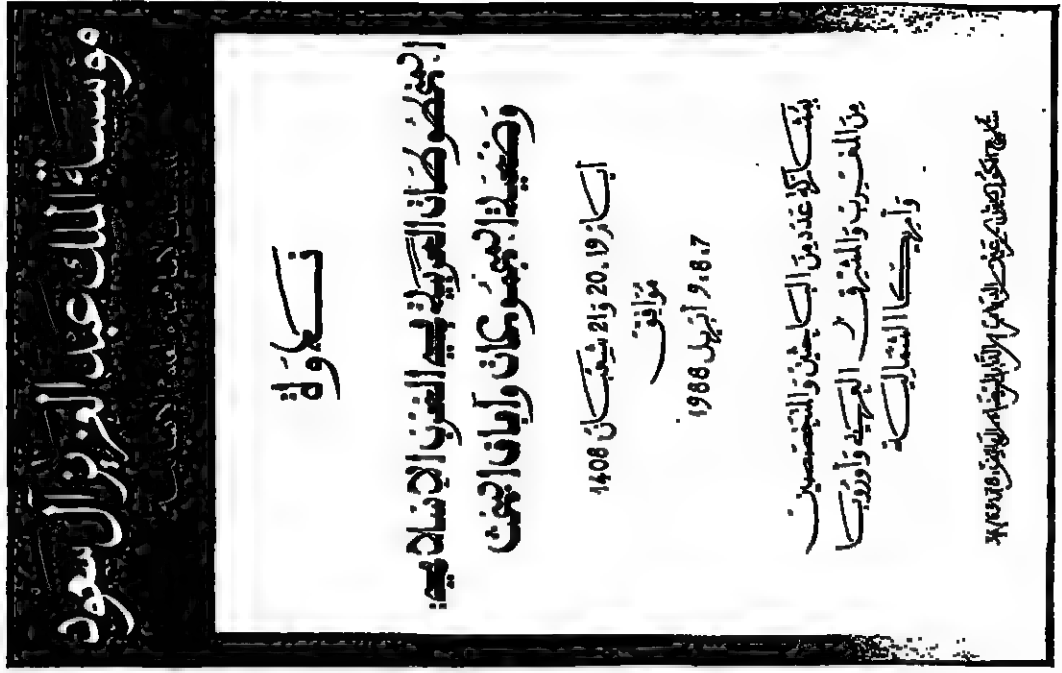 مؤسسة الملك عبد العزيز آل سعود
للدراسات الإسلامية والعلوم الإنسانية
نَدوَة
المخطوطات العربية في الغرب الإسلامي:
وضعية المجموعات وآفاق البحث
أيام 19، 20 و 21 شعبان 1408
مُوَافِق
7، 8 و 9 أبريل 1988
بمُشاركة عَدَد مِنَ الباحثين وَالمتخصصين
مِنَ المغرب وَالمشرق العربي وَأوروبا
وَأمريكا الشمالية